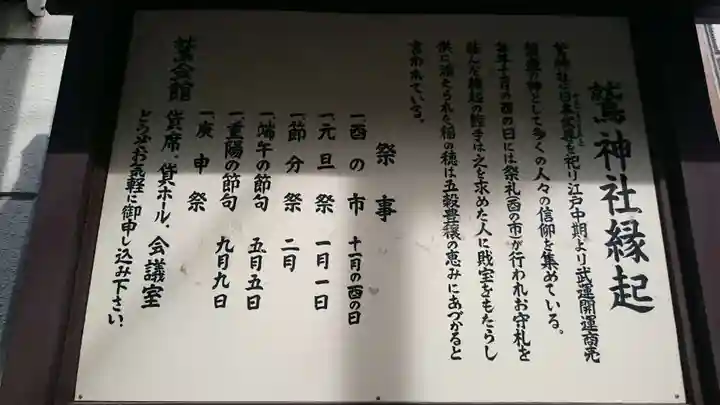 鷲神社縁起
鷲神社は日本武尊を祀り江戸中期より武運開運商売
繁盛の神として多くの人々の信仰を集めている。
毎年十一月の酉の日には祭礼(酉の市)が行われお守札を
結んだ縁起の熊手は之を求めた人に財宝をもたらし
供に添えられた稲の穂は五穀豊穣の恵みにあづかると
言われている。
祭事
一酉の市 十一月の酉の日
一元旦祭 一月一日
一節分祭 二月
一端午の節句 五月五日
一重陽の節句 九月九日
一庚申祭
鷲会館 貸席、貸ホール、会議室
どうぞお気軽に御申し込み下さい。